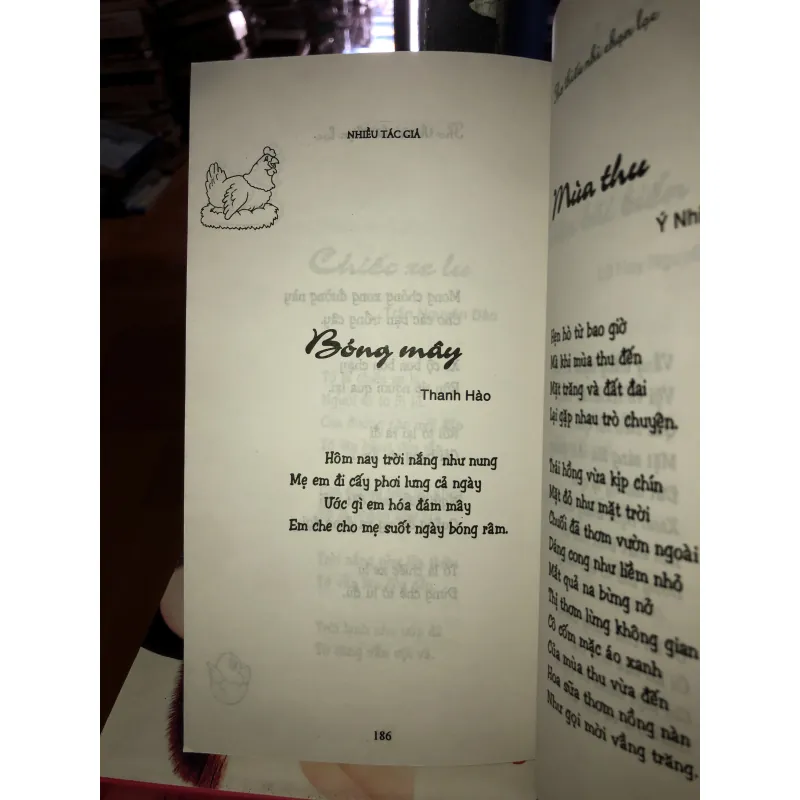 NHIỀU TÁC GIẢ
Bóng mây
Thanh Hào
Hôm nay trời nắng như nung
Mẹ em đi cấy phơi lưng cả ngày
Ước gì em hóa đám mây
Em che cho mẹ suốt ngày bóng râm.
186
Thơ thiếu nhi chọn lọc
Mùa thu
Ý Nhi
Hẹn hò từ bao giờ
Mà khi mùa thu đến
Mặt trăng và đất đai
Lại gặp nhau trò chuyện.
Trái hồng vừa kịp chín
Mặt đỏ như mặt trời
Chuối đã thơm vườn ngoài
Dáng cong như liềm nhỏ
Mắt quả na bừng nở
Thị thơm lừng không gian
Cô cốm mặc áo xanh
Của mùa thu vừa đến
Hoa sữa thơm nồng nàn
Như gọi mời vầng trăng.